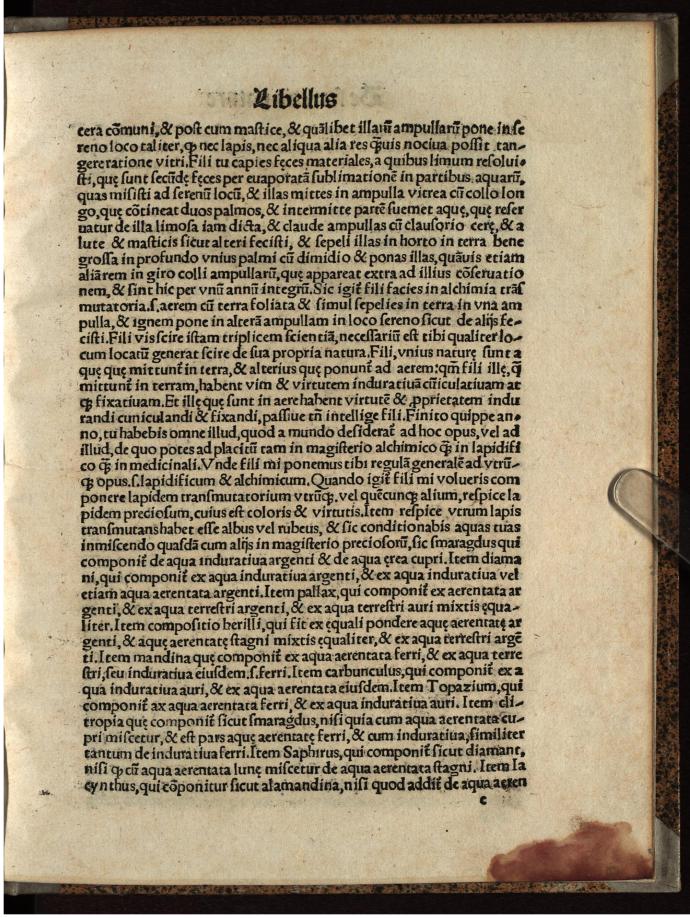 Libellus
cera cōmuni, & post cum mastice, & quālibet illarū ampullarū pone in se
reno loco taliter, ꝙ nec lapis, nec aliqua alia res q̄uis nociua possit tan-
gere ratione vitri. Fili tu capies fęces materiales, a quibus limum resolui-
sti, quę sunt secūdę fęces per euaporatā sublimationē in partibus aquarū,
quas misisti ad serenū locū, & illas mittes in ampulla vitrea cū collo lon
go, quę cōtineat duos palmos, & intermitte partē suemet aquę, quę reser
uatur de illa limosa iam dicta, & claude ampullas cū clausorio cerę, & a
lute & masticis sicut alteri fecisti, & sepeli illas in horto in terra bene
grossa in profundo vnius palmi cū dimidio & ponas illas, quāuis etiam
aliā rem in giro colli ampullarū, quę appareat extra ad illius cōseruatio
nem, & sint hic per vnū annū integrū. Sic igit̄ fili facies in alchimia trās
mutatoria. s. aerem cū terra foliata & simul sepelies in terra in vna am
pulla, & ignem pone in alterā ampullam in loco sereno sicut de alijs fe-
cisti. Fili vis scire istam triplicem scientiā, necessariū est tibi qualiter lo-
cum locatū generat scire de sua propria natura. Fili, vnius naturę sunt a
quę quę mittunt̄ in terra, & alterius quę ponunt̄ ad aerem: qm̄ fili illę, q̄
mittunt̄ in terram, habent vim & virtutem induratiuā cūiculatiuam at
ꝙ fixatiuam. Et illę que sunt in aere habent virtutē & ꝓprietatem indu
randi cuniculandi & fixandi, passiue tn̄ intellige fili. Finito quippe an-
no, tu habebis omne illud, quod a mundo desiderat̄ ad hoc opus, vel ad
illud, de quo potes ad placitū tam in magisterio alchimico q̄ in lapidifi
co q̄ in medicinali. Vnde fili mi ponemus tibi regulā generalē ad vtrū-
ꝙ opus. s. lapidificum & alchimicum. Quando igit̄ fili mi volueris com
ponere lapidem transmutatorium vtrūꝙ, vel quęcunꝙ alium, respice la
pidem preciosum, cuius est coloris & virtutis. Item respice vtrum lapis
transmutans habet esse albus vel rubeus, & sic conditionabis aquas tuas
inmiscendo quasdā cum alijs in magisterio preciosorū, sic smaragdus qui
componit̄ de aqua induratiua argenti & de aqua ęrea cupri. Item diama
ni, qui componit̄ ex aqua induratiua argenti, & ex aqua induratiua vel
etiam aqua aerentata argenti. Item pallax, qui componit̄ ex aerentata ar
genti, & ex aqua terrestri argenti, & ex aqua terrestri auri mixtis ęqua-
liter. Item compositio berilli, qui fit ex ęquali pondere aquę aerentatę ar
genti, & aquę aerentatę stagni mixtis ęqualiter, & ex aqua terrestri argē
ti. Item mandina quę componit̄ ex aqua aerentata ferri, & ex aqua terre
stri, seu induratiua eiusdem. s. ferri. Item carbunculus, qui componit̄ ex a
qua induratiua auri, & ex aqua aerentata eiusdem. Item Topazium, qui
componit̄ ax aqua aerentata ferri, & ex aqua induratiua auri. Item eli-
tropia quę componit̄ sicut smaragdus, nisi quia cum aqua aerentata cu-
pri miscetur, & est pars aquę aerentatę ferri, & cum induratiua, similiter
tantum de induratiua ferri. Item Saphirus, qui componit̄ sicut diamant,
nisi ꝙ cū aqua aerentata lunę miscetur de aqua aerentata stagni. Item Ia
cynthus, qui cōponitur sicut alamandina, nisi quod addit̄ de aqua aeren
c